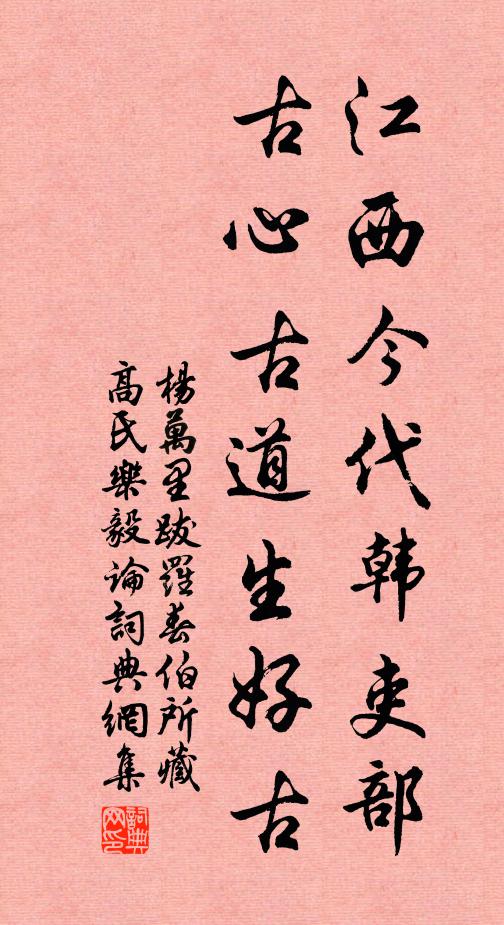 江西今代韩吏部
古心古道生好古
楊萬里跋羅春伯所藏
高氏樂毅論詞典網集
詞典网印